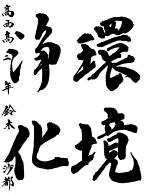 環境
浄化
高西高二年 鈴木沙都